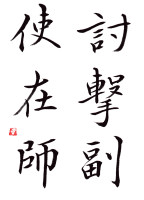 討擊副
使在師